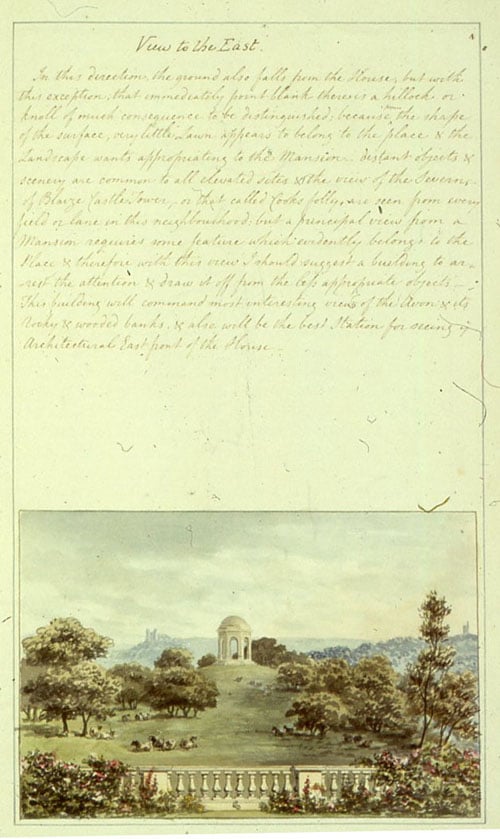 View to the East.
In this direction, the ground also falls from the House, but with
this exception, that immediately point blank there is a hillock or
knoll of much consequence to be distinguished; because, from the shape
of the surface, very little Lawn appears to belong to the place & the
Landscape wants appropriating to the Mansion. distant objects &
scenery are common to all elevated sites & the view of the Severn,
of Blaize Castle Tower, or that called Cooks folly, are seen from every
field or lane in this neighbourhood; but a principal view from a
Mansion requires some feature which evidently belongs to the
Place & therefore with this view I should suggest a building to ar-
rest the attention & draw it off from the less appropriate objects—
This building will command most interesting views of the Avon & its
rocky & wooded banks, & also will be the best Station for seeing ye
Architectural East front of the House—